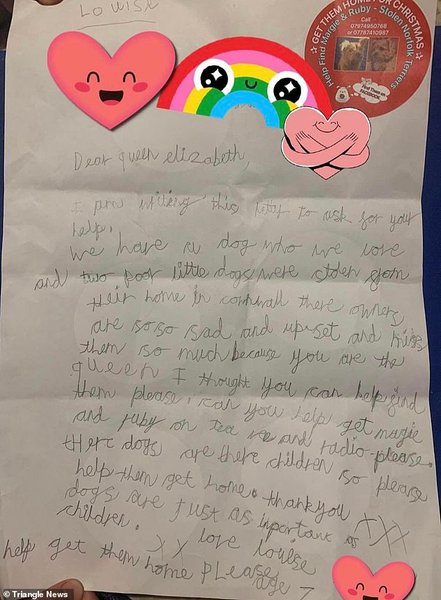 Louise
☆ GET THEM HOME FOR CHRISTMAS ☆
Call
07974950768
or 07787410987
Help Find Margie & Ruby - Stolen Norfolk Terriers
Find Them on
FACEBOOK
Dear queen elizabeth,
I am writing this letar to ask for your
help.
We have a dog who we love
and two poor little dogs were stolen from
their home in cornwall there owners
are so so sad and up set and miss
them so much because you are the
queen I thought you can help find
them please. can you help get magie
and ruby on tea ve and radio please.
there dogs are there children so please
help them get home. thankyou XXX
dogs are just as inportant as
children. XX love louise
age 7
help get them home PLease
© Triangle News